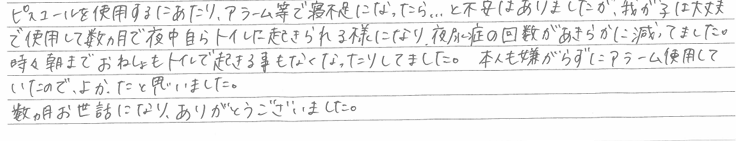 ピスコールを使用するにあたり、アラーム等で寝不足になったら…と不安はありましたが、我が子は大丈夫
で使用して数ヵ月で夜中自らトイレに起きられる様になり、夜尿症の回数があきらかに減ってました。
時々朝までおねしょもトイレで起きる事もなくなったりしてました。本人も嫌がらずにアラーム使用して
いたので、よかったと思いました。
数ヵ月お世話になり、ありがとうございました。